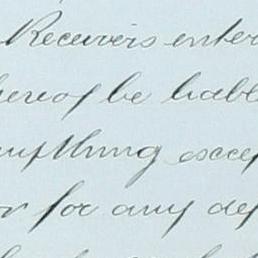 Receivers enter
hereof be liable
anything excep
or for any def